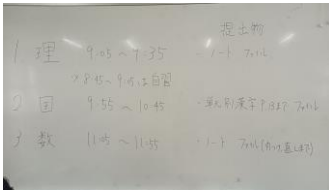 提出物
1 理 9:05～9:35 ・ノート ファイル
※8:45～9:05は自習
2 国 9:55～10:45 ・単元別漢字 P.まで ファイル
3 数 11:05～11:55 ・ノート ファイル(直しまで)